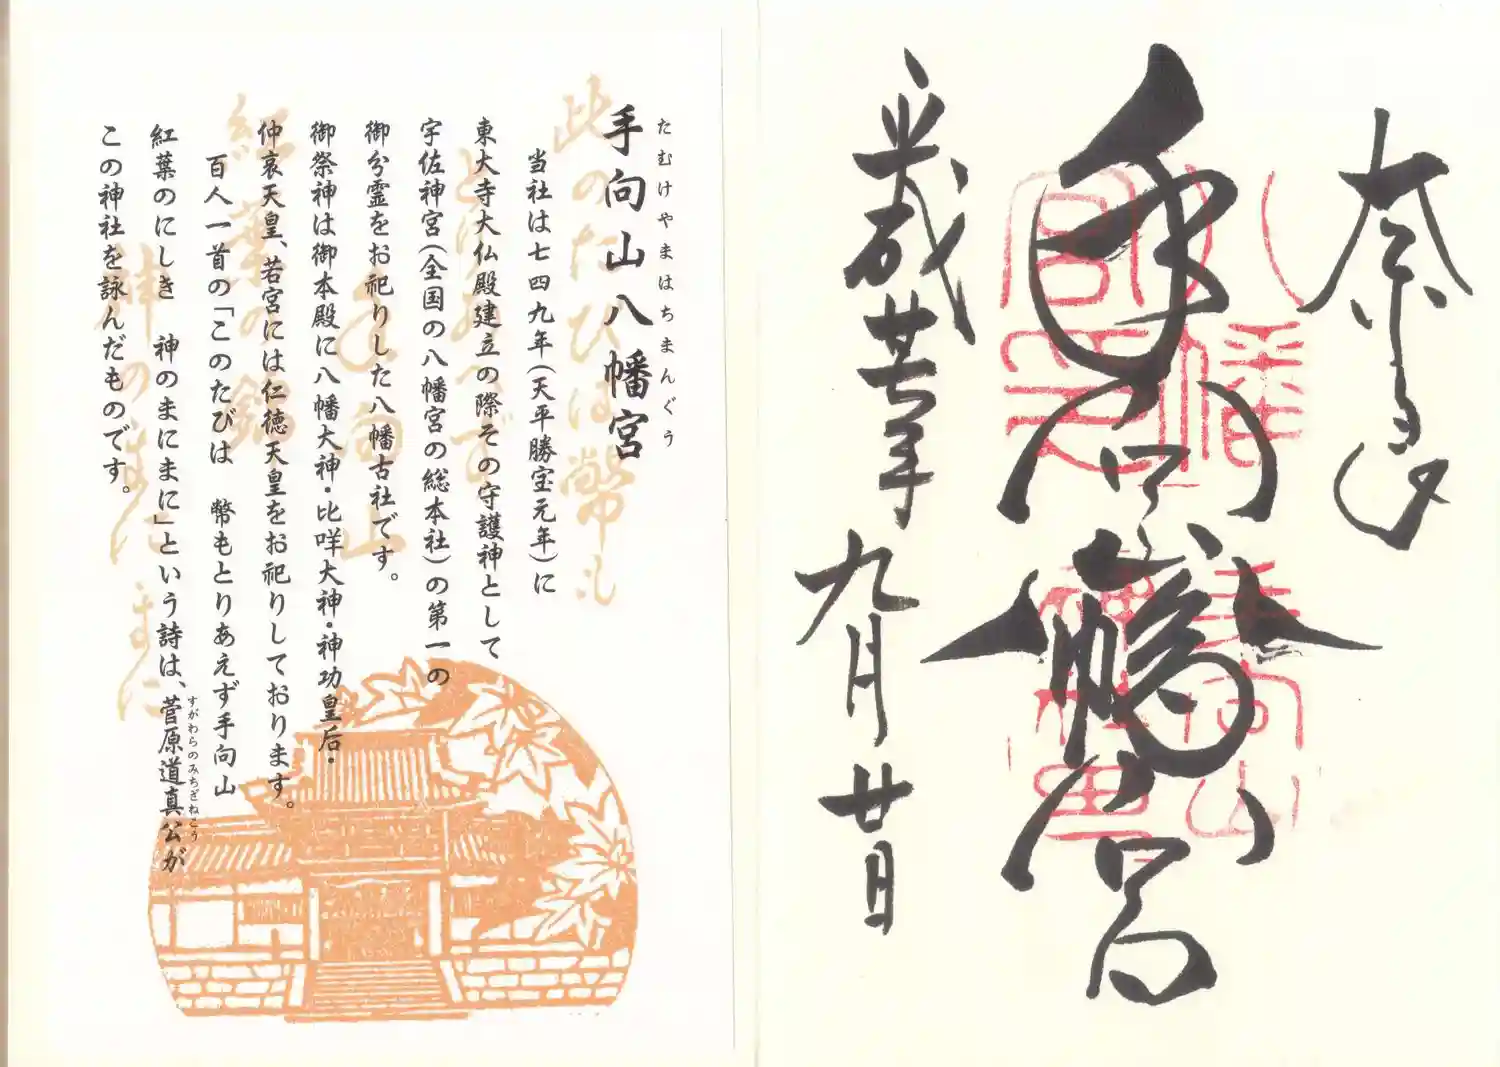 奈良
手向山八幡宮
平成廿七年九月廿日
手向山八幡宮
たむけやまはちまんぐう
当社は七四九年(天平勝宝元年)に
東大寺大仏殿建立の際その守護神として
宇佐神宮(全国の八幡宮の総本社)の第一の
御分霊をお祀りした八幡古社です。
御祭神は御本殿に八幡大神・比咩大神・神功皇后・
仲哀天皇、若宮には仁徳天皇をお祀りしております。
百人一首の「このたびは 幣もとりあえず手向山
紅葉のにしき 神のまにまに」という詩は、菅原道真公が
すがわらのみちざねこう
この神社を詠んだものです。
此のたひは幣も
とりあへで
手向山
紅葉の錦
神のまにまに